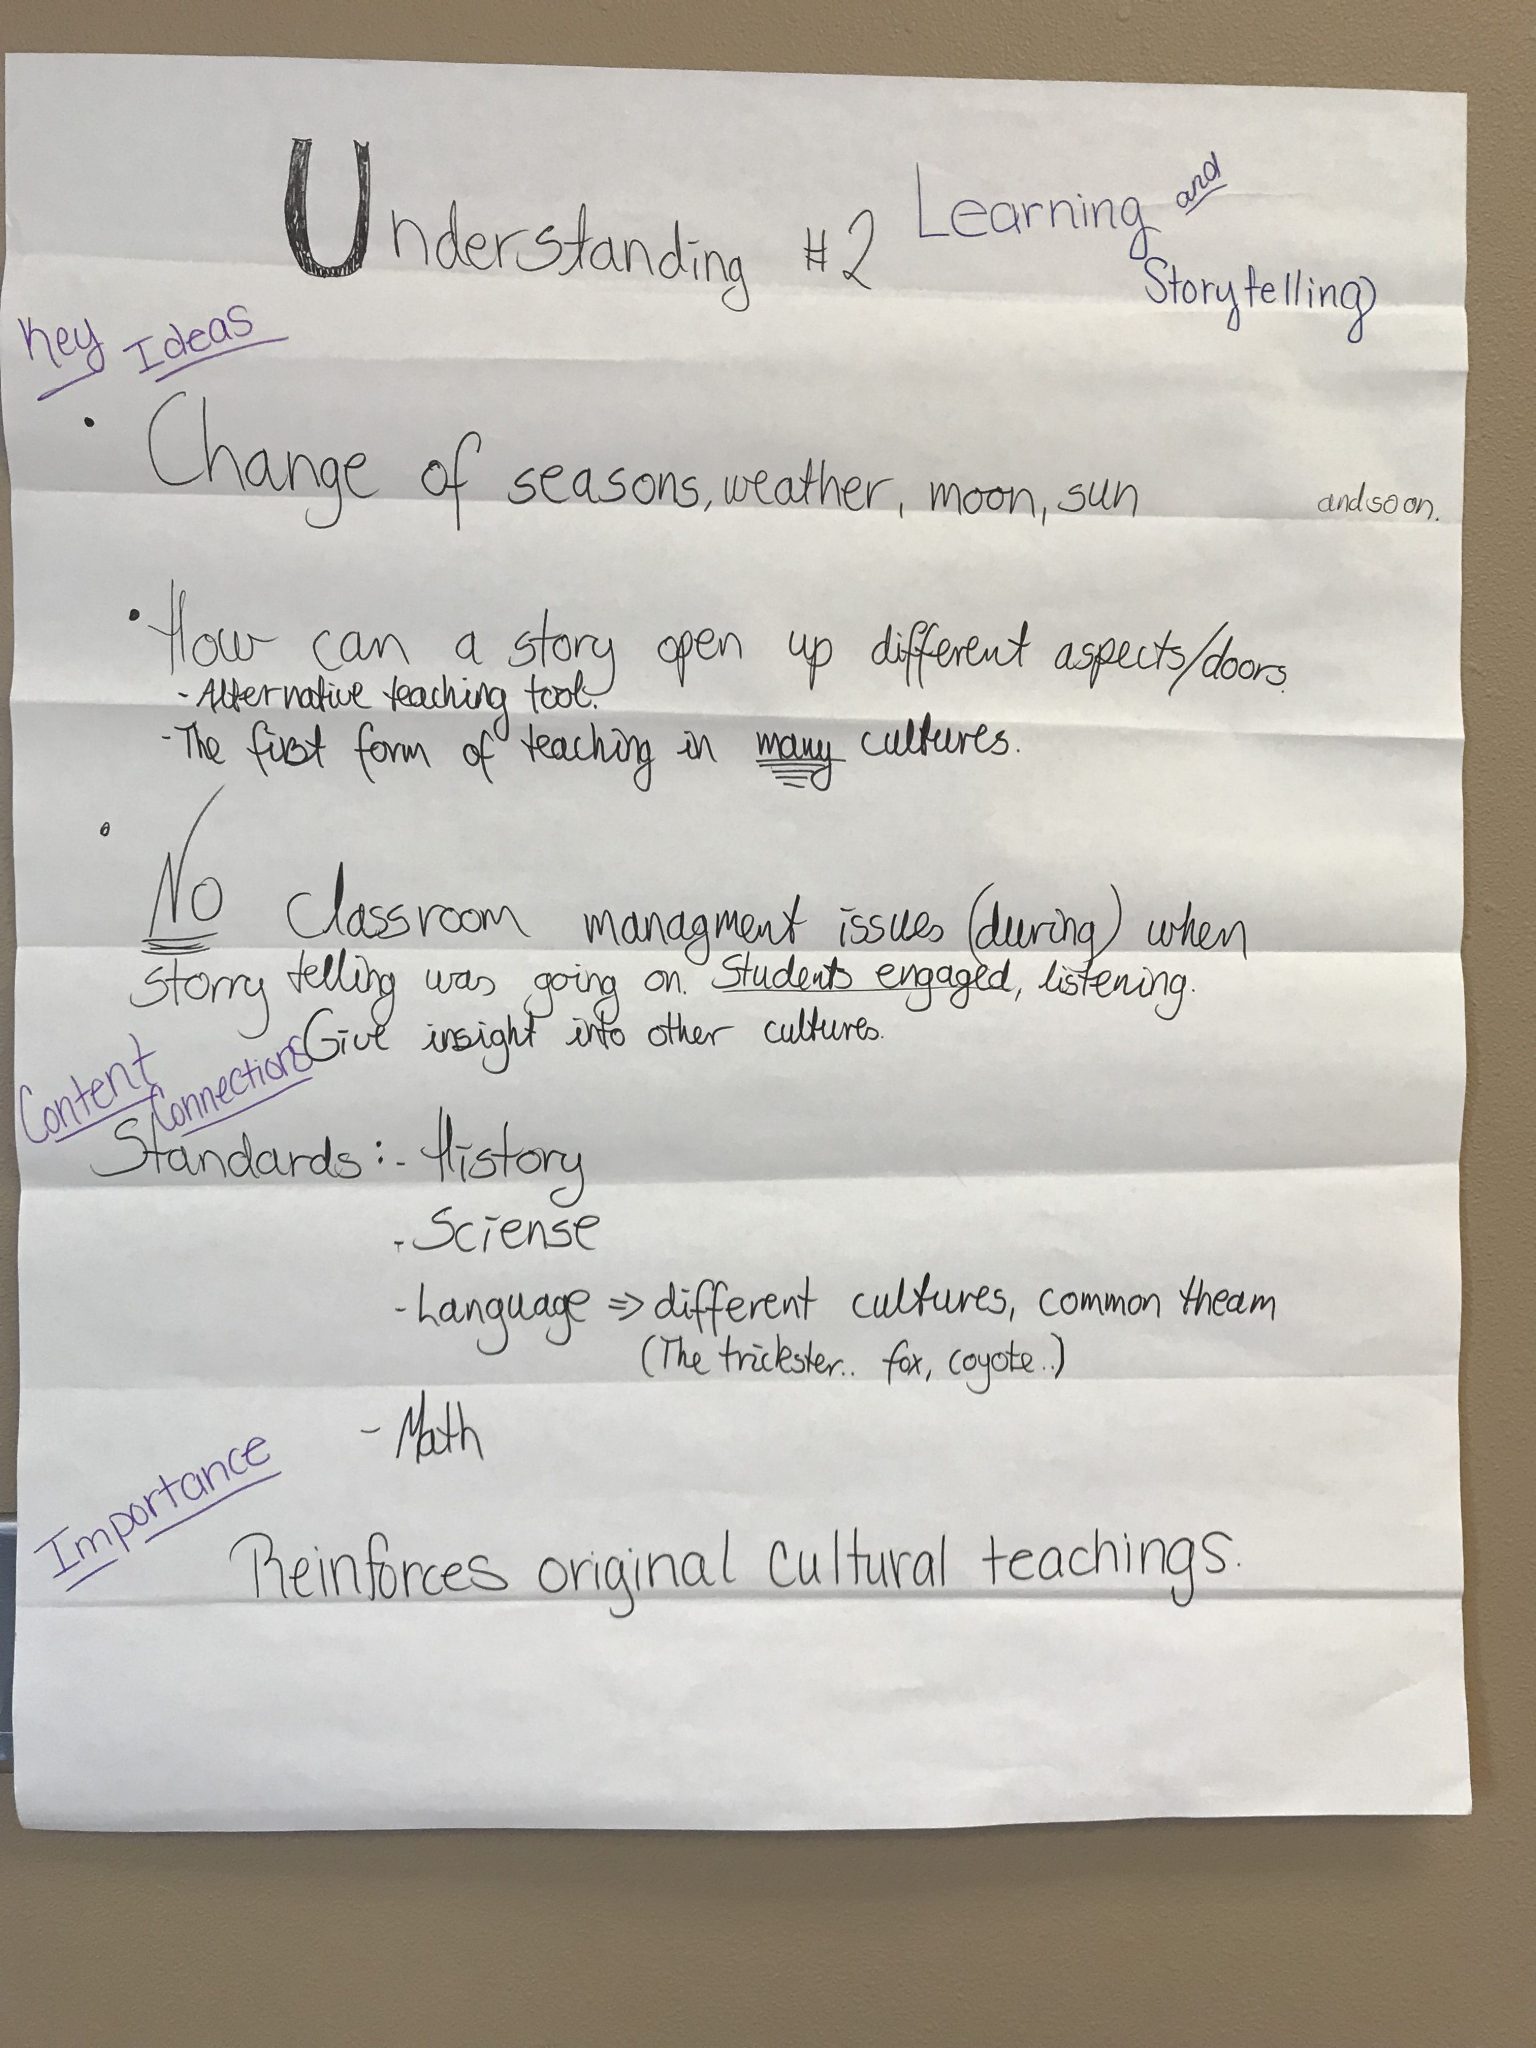 Understanding #2 Learning and
Storytelling
Key Ideas
• Change of seasons, weather, moon, sun and so on.
• How can a story open up different aspects/doors.
- Alternative teaching tool.
- The first form of teaching in many cultures.
• No Classroom managment issues (during) when
storry telling was going on. Students engaged, listening.
Give insight into other cultures.
Content Connections
Standards: - History
- Sciense
- Language => different cultures, common theam
(The trickster.. fox, coyote..)
- Math
Importance
Reinforces original cultural teachings.